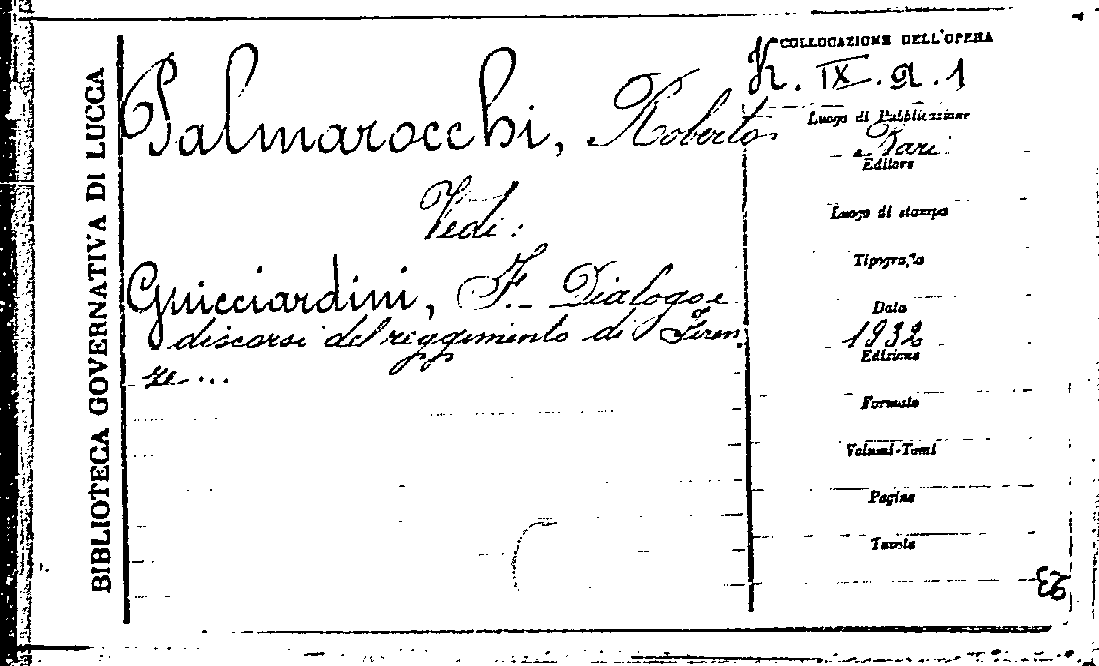 BIBLIOTECA GOVERNATIVA DI LUCCA
Palmarocchi, Roberto
Vedi:
Guicciardini, F. - Dialogo e
discorsi del reggimento di Firen
ze....
COLLOCAZIONE DELL'OPERA
K. IX. A. 1
Luogo di Pubblicazione
Bari
Editore
Luogo di stampa
Tipografia
Data
1932
Edizione
Formato
Volumi-Tomi
Pagine
Tavole
23